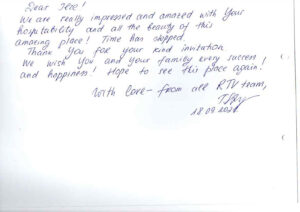 Dear !
We are really impressed and amazed with Your
hospitability and all the beauty of this
amazing place! Time has skipped.
Thank You for your kind invitation
We wish You and your family every success
and happiness! Hope to see this place again!
With love from all RTV team,
18.09.